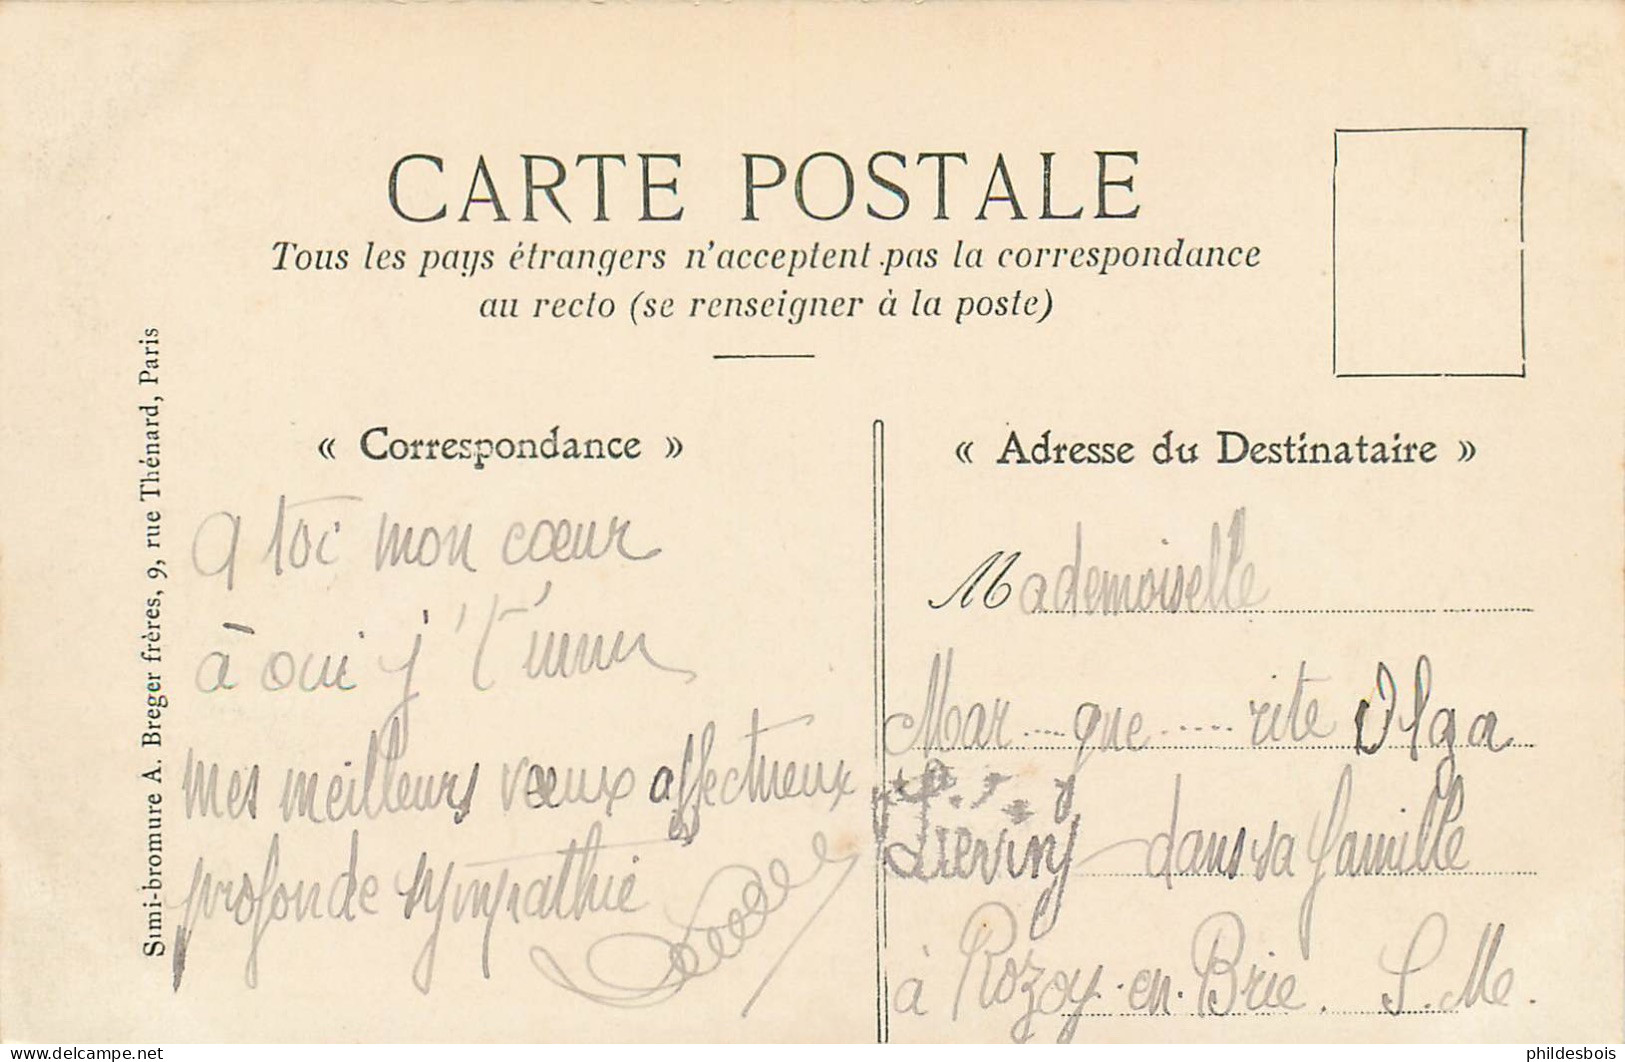 CARTE POSTALE
Tous les pays étrangers n'acceptent pas la correspondance
au recto (se renseigner à la poste)
Simi-bromure A. Breger frères, 9, rue Thénard, Paris
« Correspondance »
A toi mon cœur
à oui j't'
mes meilleurs vœux affectueux
profonde sympathie
« Adresse du Destinataire »
Mademoiselle
Mar....gue.....rite Olga
dans sa famille
à Rozoy-en-Brie. S.Me.
delcampe.net
phildesbois